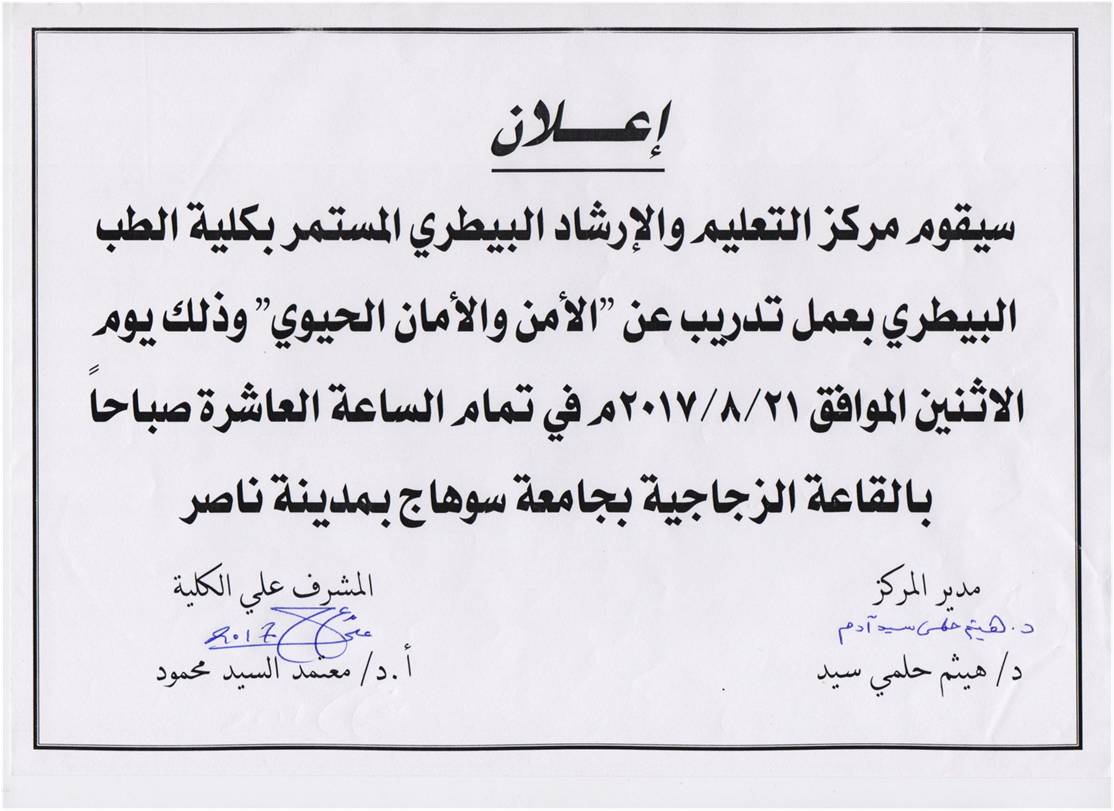 إعـــلان
سيقوم مركز التعليم والإرشاد البيطري المستمر بكلية الطب
البيطري بعمل تدريب عن "الأمن والأمان الحيوي" وذلك يوم
الاثنين الموافق ٢٠١٧/٨/٢١م في تمام الساعة العاشرة صباحاً
بالقاعة الزجاجية بجامعة سوهاج بمدينة ناصر
مدير المركز
المشرف علي الكلية
د. هيثم حلمى سيد آدم
2017
د/ هيثم حلمي سيد
أ.د/ معتمد السيد محمود